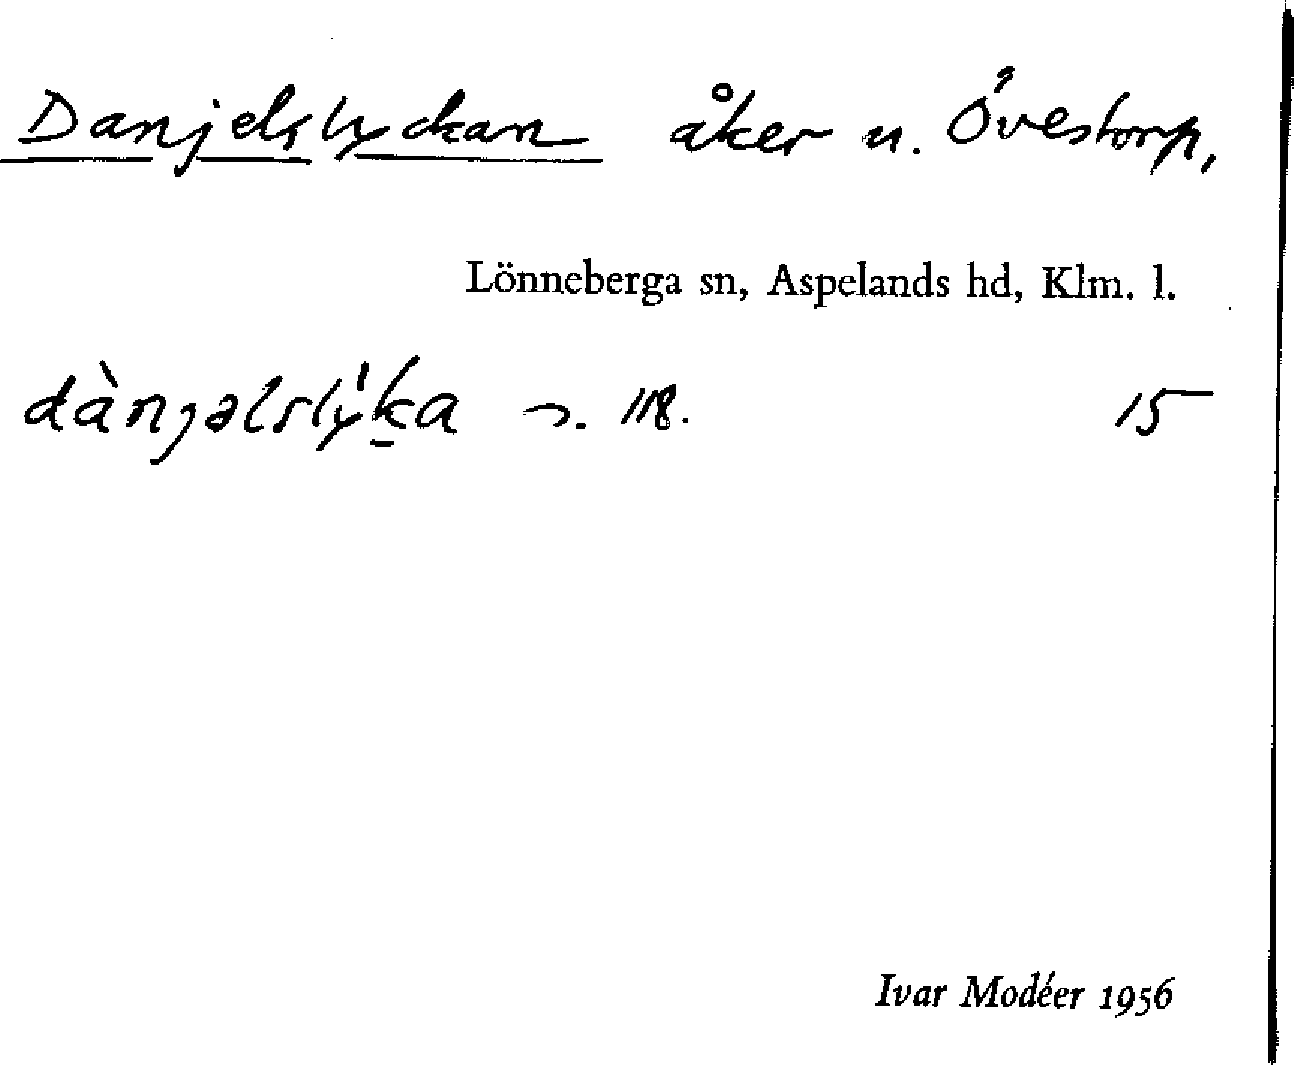 Danjelslyckan åker u. Övestorp,
Lönneberga sn, Aspelands hd, Klm. l.
dànjəlslý'ka 118. 15
Ivar Modéer 1956